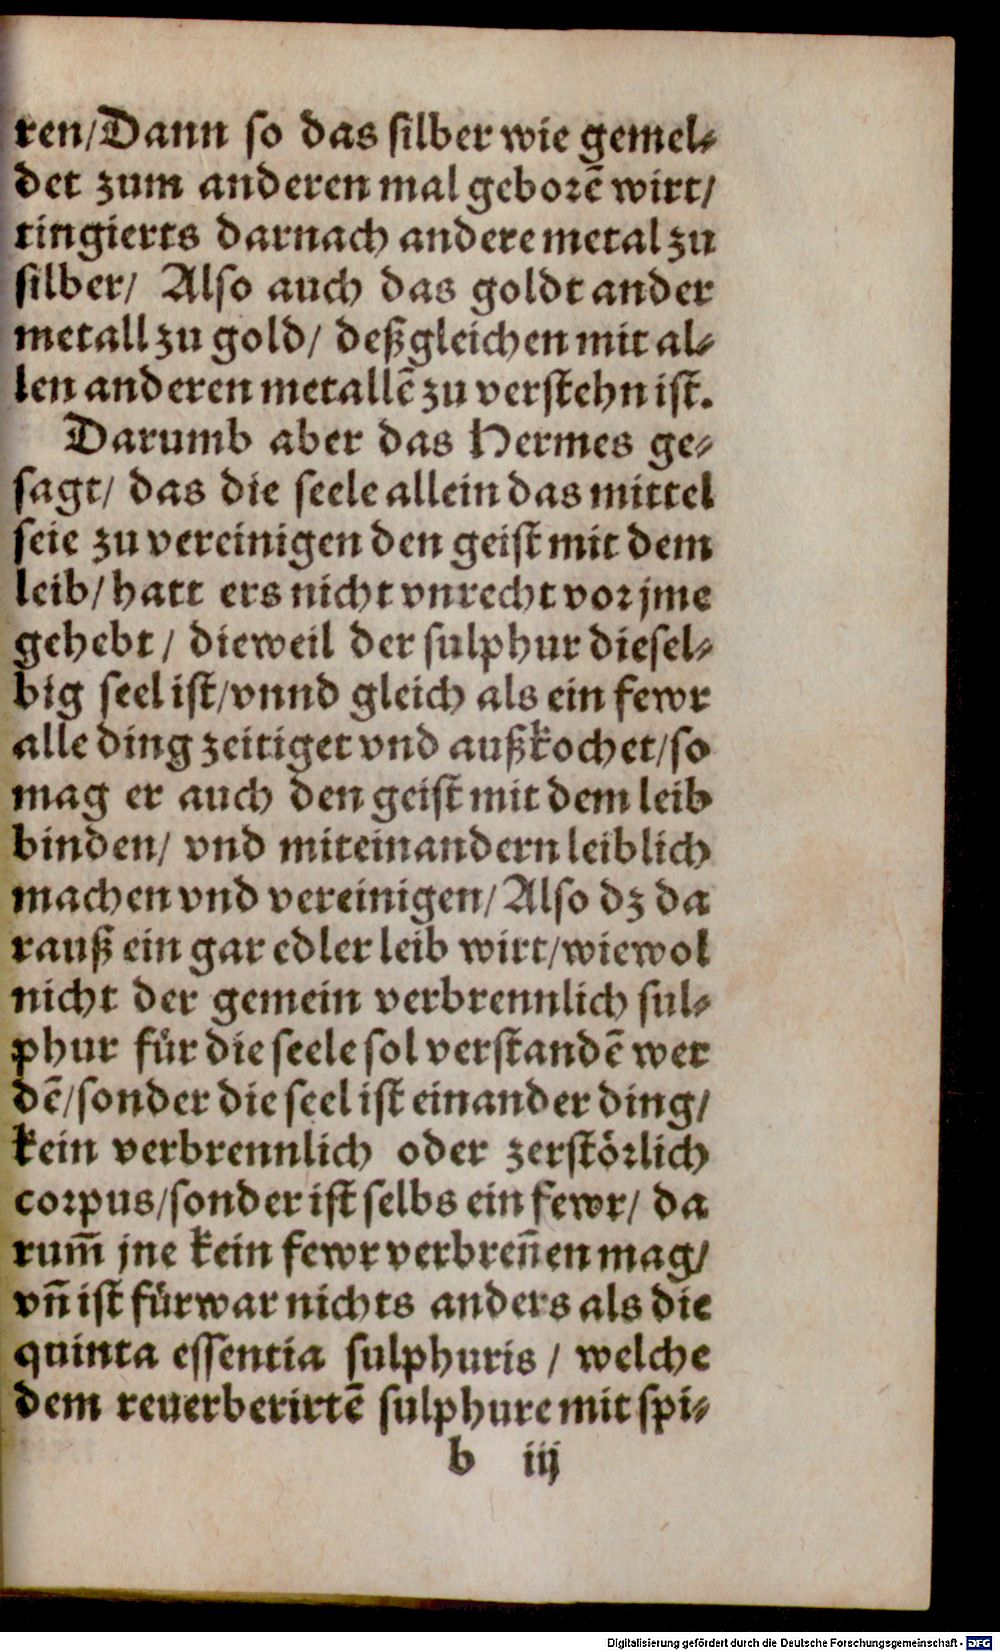 ren/Dann so das silber wie gemel⸗
det zum anderen mal geborē wirt/
tingierts darnach andere metal zu
silber/ Also auch das goldt ander
metall zu gold/ deßgleichen mit al⸗
len anderen metallē zu verstehn ist.
Darumb aber das Hermes ge⸗
sagt/ das die seele allein das mittel
seie zu vereinigen den geist mit dem
leib/ hatt ers nicht vnrecht vor jme
gehebt/ dieweil der sulphur diesel⸗
big seel ist/vnnd gleich als ein fewr
alle ding zeitiget vnd außkochet/so
mag er auch den geist mit dem leib
binden/ vnd miteinandern leiblich
machen vnd vereinigen/Also dz da
rauß ein gar edler leib wirt/wiewol
nicht der gemein verbrennlich sul⸗
phur für die seele sol verstandē wer
dē/sonder die seel ist ein ander ding/
kein verbrennlich oder zerstörlich
corpus/sonder ist selbs ein fewr/ da
rum̄ jne kein fewr verbren̄en mag/
vn̄ ist fürwar nichts anders als die
quinta essentia sulphuris/ welche
dem reuerberirtē sulphure mit spi⸗
b iij
Digitalisierung gefördert durch die Deutsche Forschungsgemeinschaft - DFG